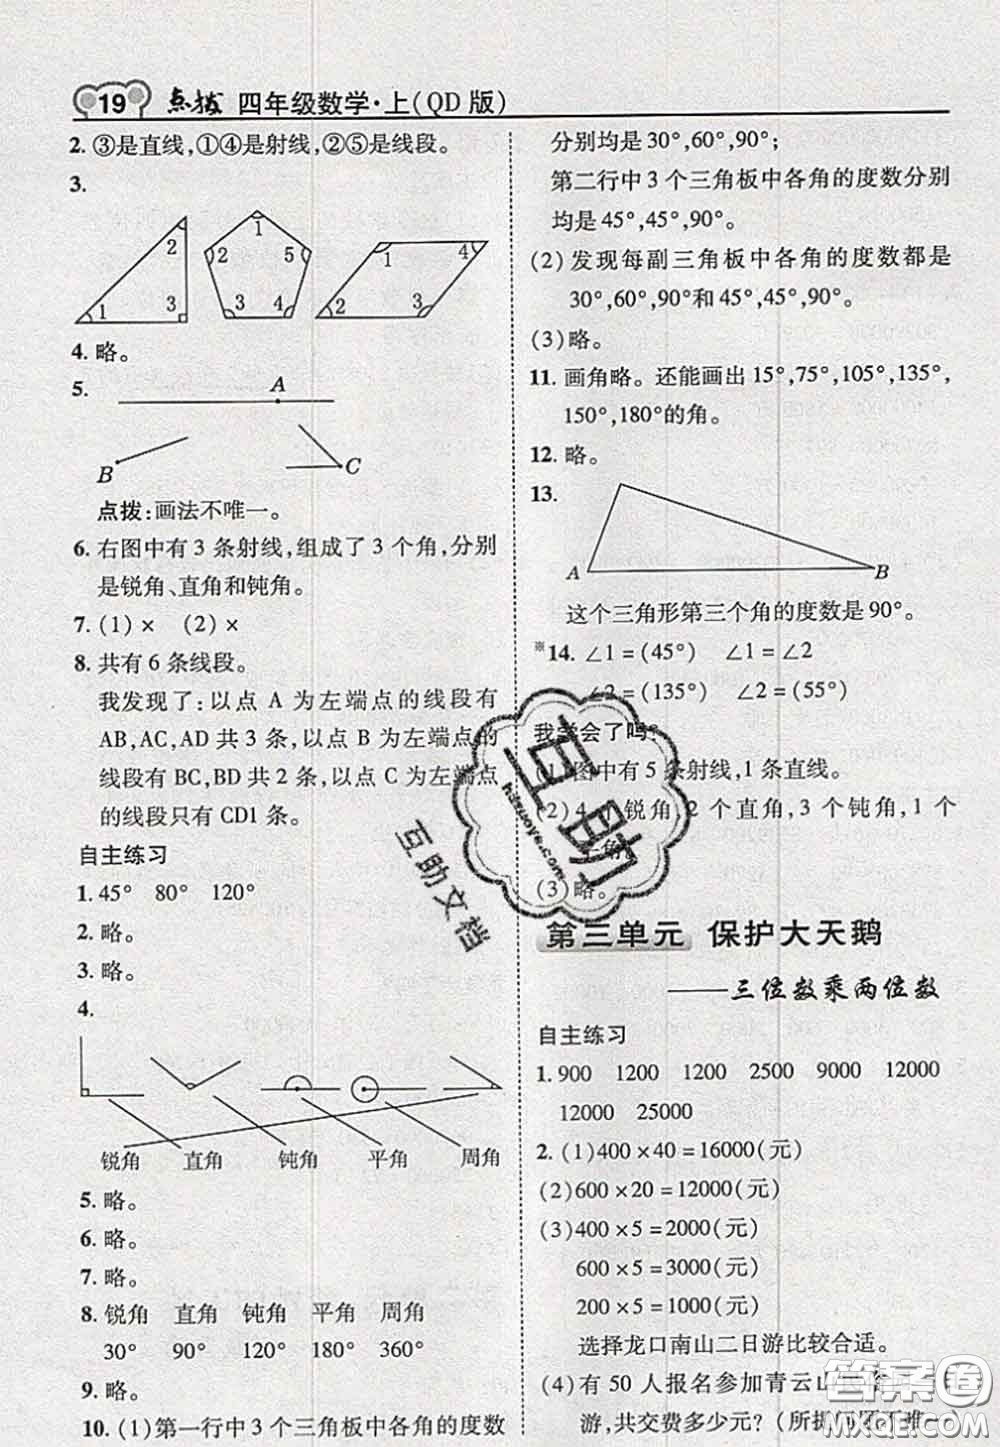 19 点拨 四年级数学·上(QD版)
2. ③是直线,①④是射线,②⑤是线段。
3.
1 2 3
1 2 3 4 5
1 2 3 4
4. 略。
5.
A
B
C
点拨:画法不唯一。
6. 右图中有3条射线,组成了3个角,分别
是锐角、直角和钝角。
7. (1)× (2)×
8. 共有6条线段。
我发现了:以点A为左端点的线段有
AB,AC,AD共3条,以点B为左端点的
线段有BC,BD共2条,以点C为左端点
的线段只有CD1条。
自主练习
1. 45° 80° 120°
2. 略。
3. 略。
4.
锐角 直角 钝角 平角 周角
5. 略。
6. 略。
7. 略。
8. 锐角 直角 钝角 平角 周角
30° 90° 120° 180° 360°
9. 略。
10. (1)第一行中3个三角板中各角的度数
分别均是30°,60°,90°;
第二行中3个三角板中各角的度数分别
均是45°,45°,90°。
(2)发现每副三角板中各角的度数都是
30°,60°,90°和45°,45°,90°。
(3)略。
11. 画角略。还能画出15°,75°,105°,135°,
150°,180°的角。
12. 略。
13.
A B
这个三角形第三个角的度数是90°。
※14. ∠1=(45°) ∠1=∠2
∠2=(135°) ∠2=(55°)
我学会了吗?
(1)图中有5条射线,1条直线。
(2)4 锐角,2个直角,3个钝角,1个
角。
(3)略。
互助
hitzuoye.com
互助文档
第三单元 保护大天鹅
——三位数乘两位数
自主练习
1. 900 1200 1200 2500 9000 12000
12000 25000
2. (1)400×40=16000(元)
(2)600×20=12000(元)
(3)400×5=2000(元)
600×5=3000(元)
200×5=1000(元)
选择龙口南山二日游比较合适。
(4)有50人报名参加青云山
游,共交费多少元?(所提问题不唯
答案卷
MXQE.COM